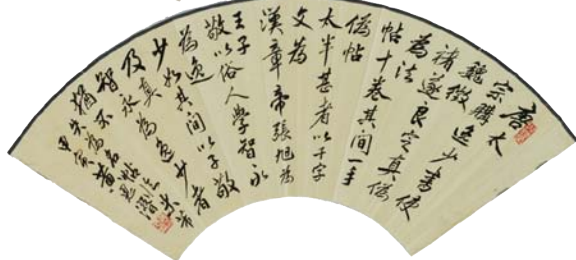 唐太
宗購逸少書使
魏徵
褚遂良定真僞
為法
帖十卷其間一手
僞帖
太半甚者以千字
文為
漢章帝張旭為
王子
敬以俗人學智永
為逸
少如其間以子敬
及真
智永為逸少者
猶不
失為名帖也米芾
甲寅黃思潛